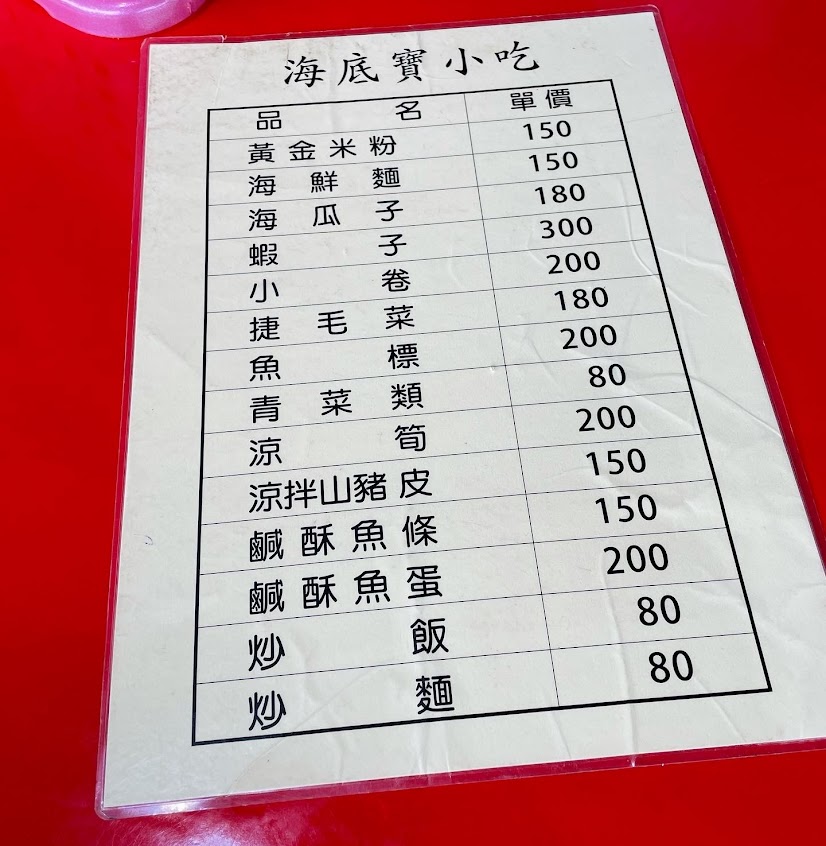 海底寶小吃
品名 單價
黃金米粉 150
海鮮麵 150
海瓜子 180
蝦子 300
小卷 200
捷毛菜 180
魚標 200
青菜類 80
涼筍 200
涼拌山豬皮 150
鹹酥魚條 150
鹹酥魚蛋 200
炒飯 80
炒麵 80